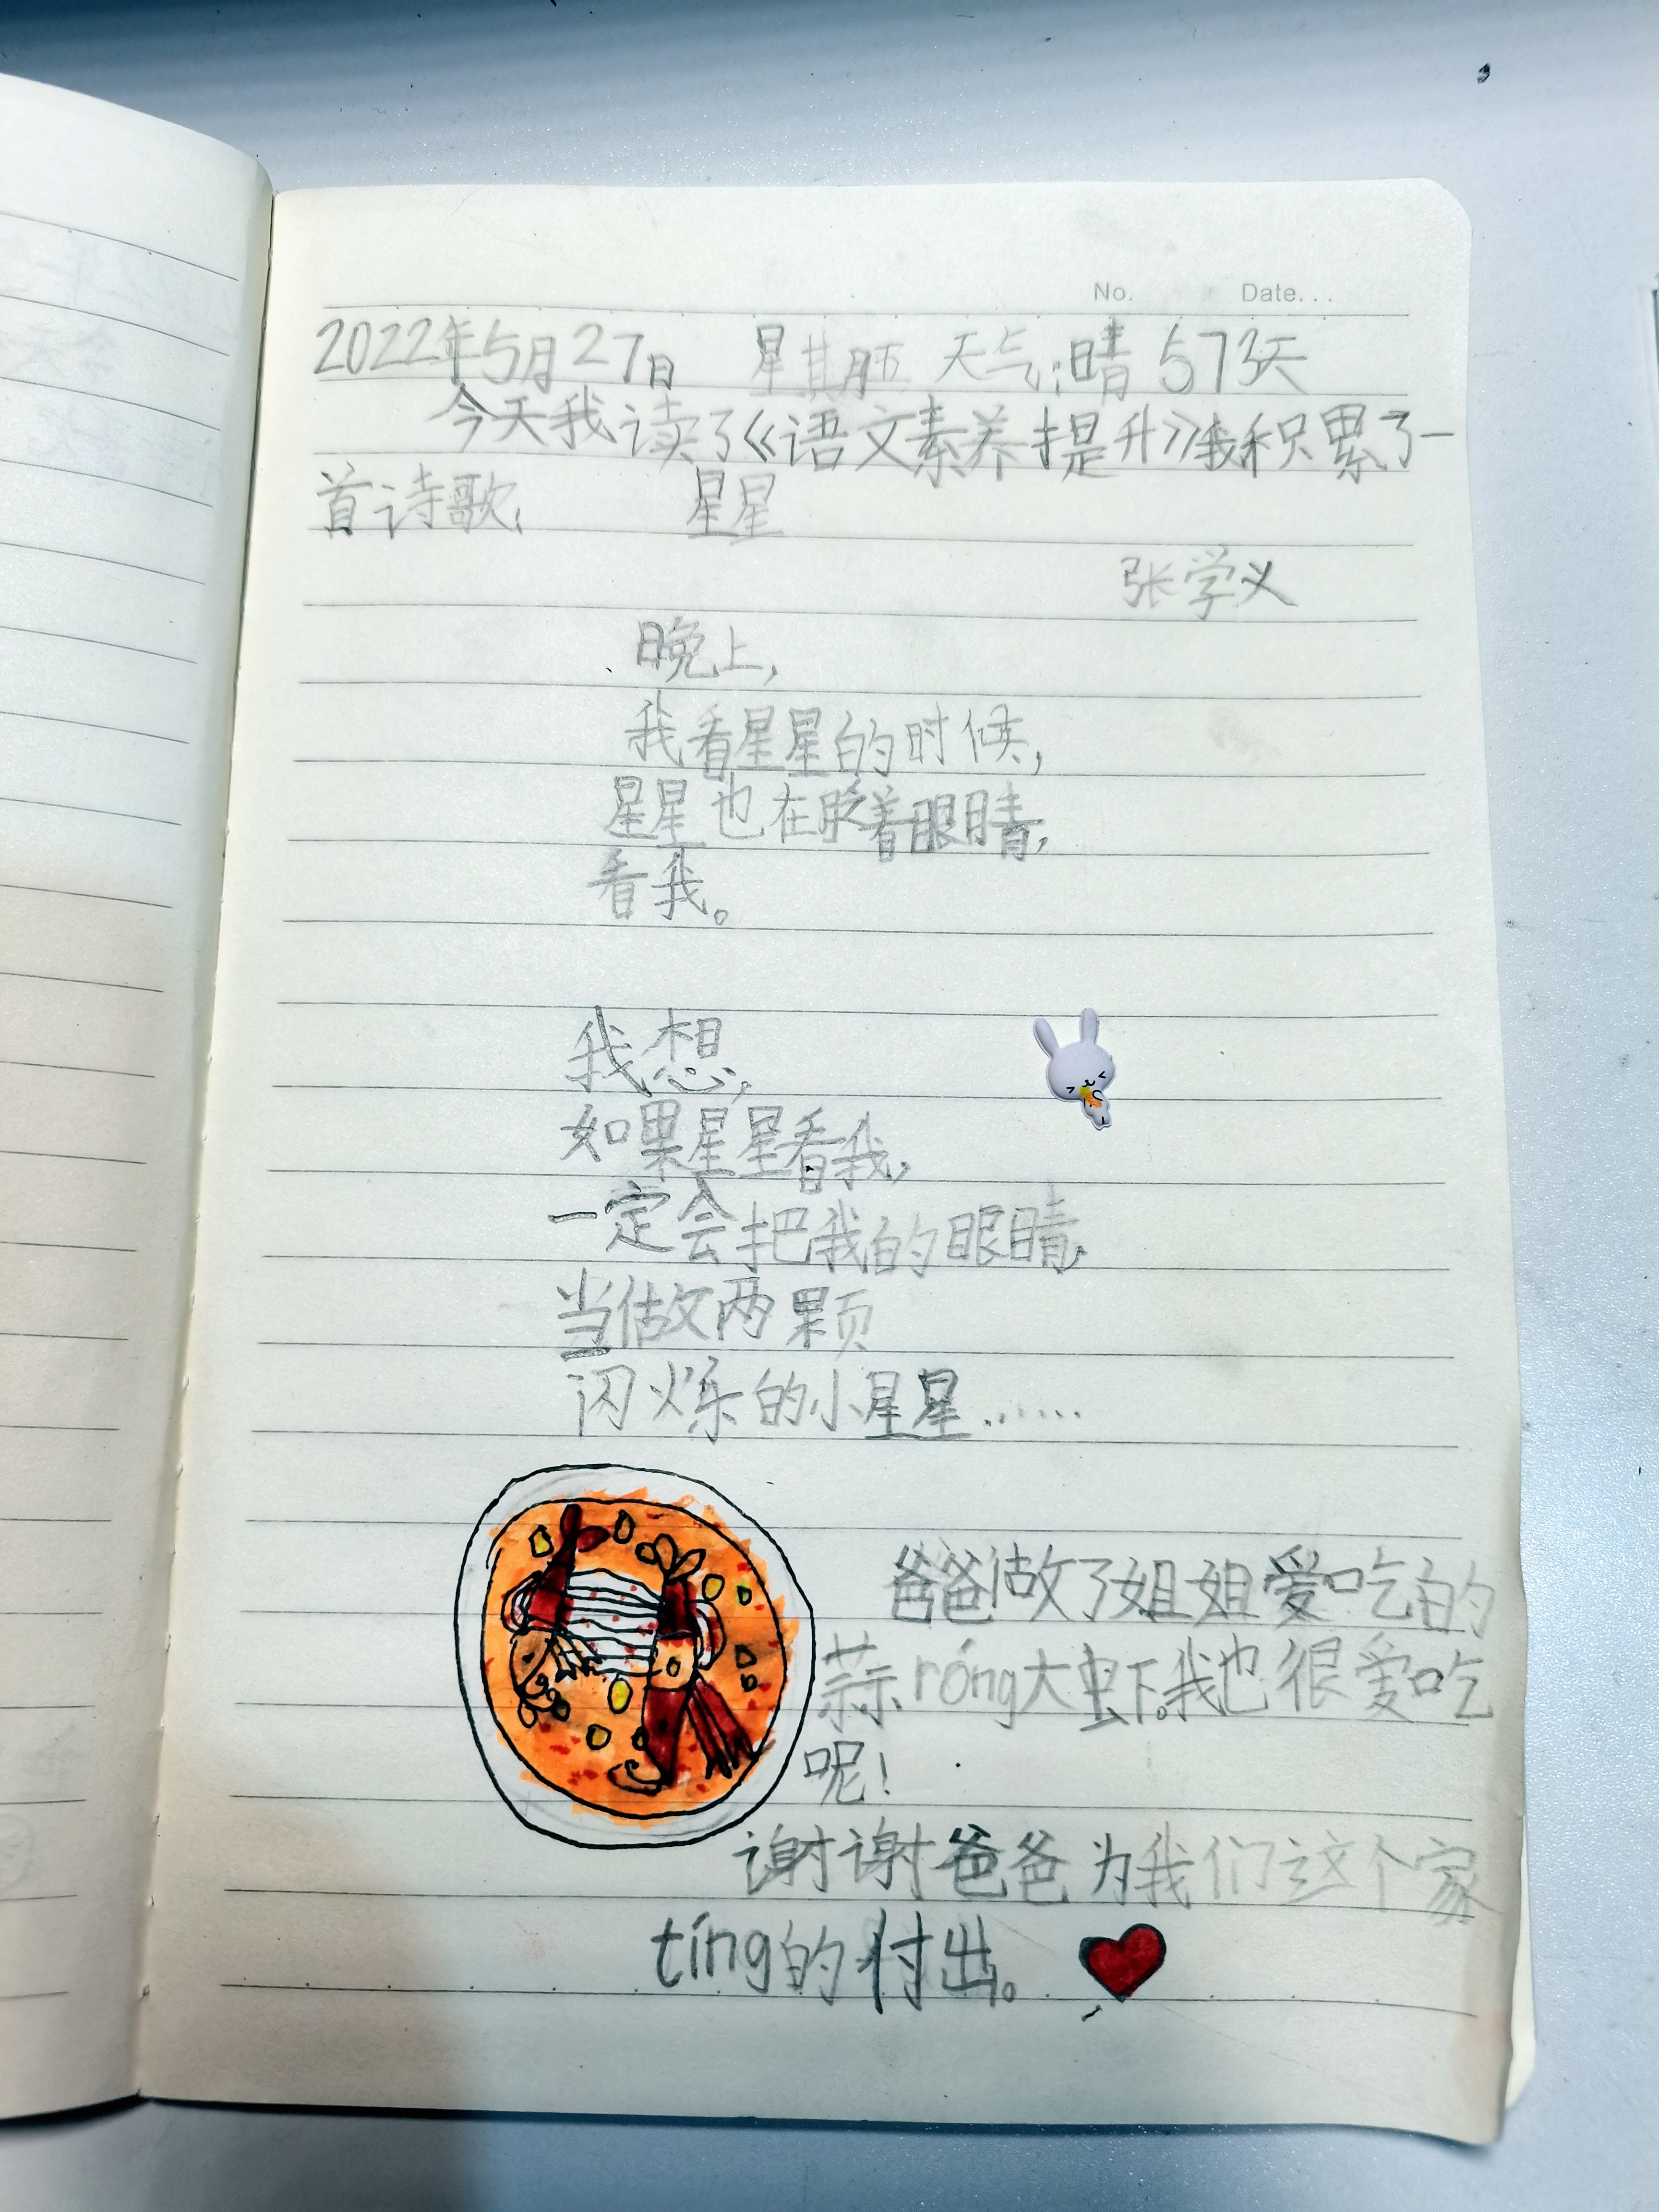 No. Date...
2022年5月27日 星期五 天气:晴 573天
今天我读了《语文素养提升》我积累了一
首诗歌: 星星
张学义
晚上,
我看星星的时候,
星星也在眨着眼睛,
看我。
我想,
如果星星看我,
一定会把我的眼睛,
当做两颗
闪烁的小星星……
爸爸做了姐姐爱吃的
蒜róng大虾。我也很爱吃
呢!
谢谢爸爸为我们这个家
tíng的付出。